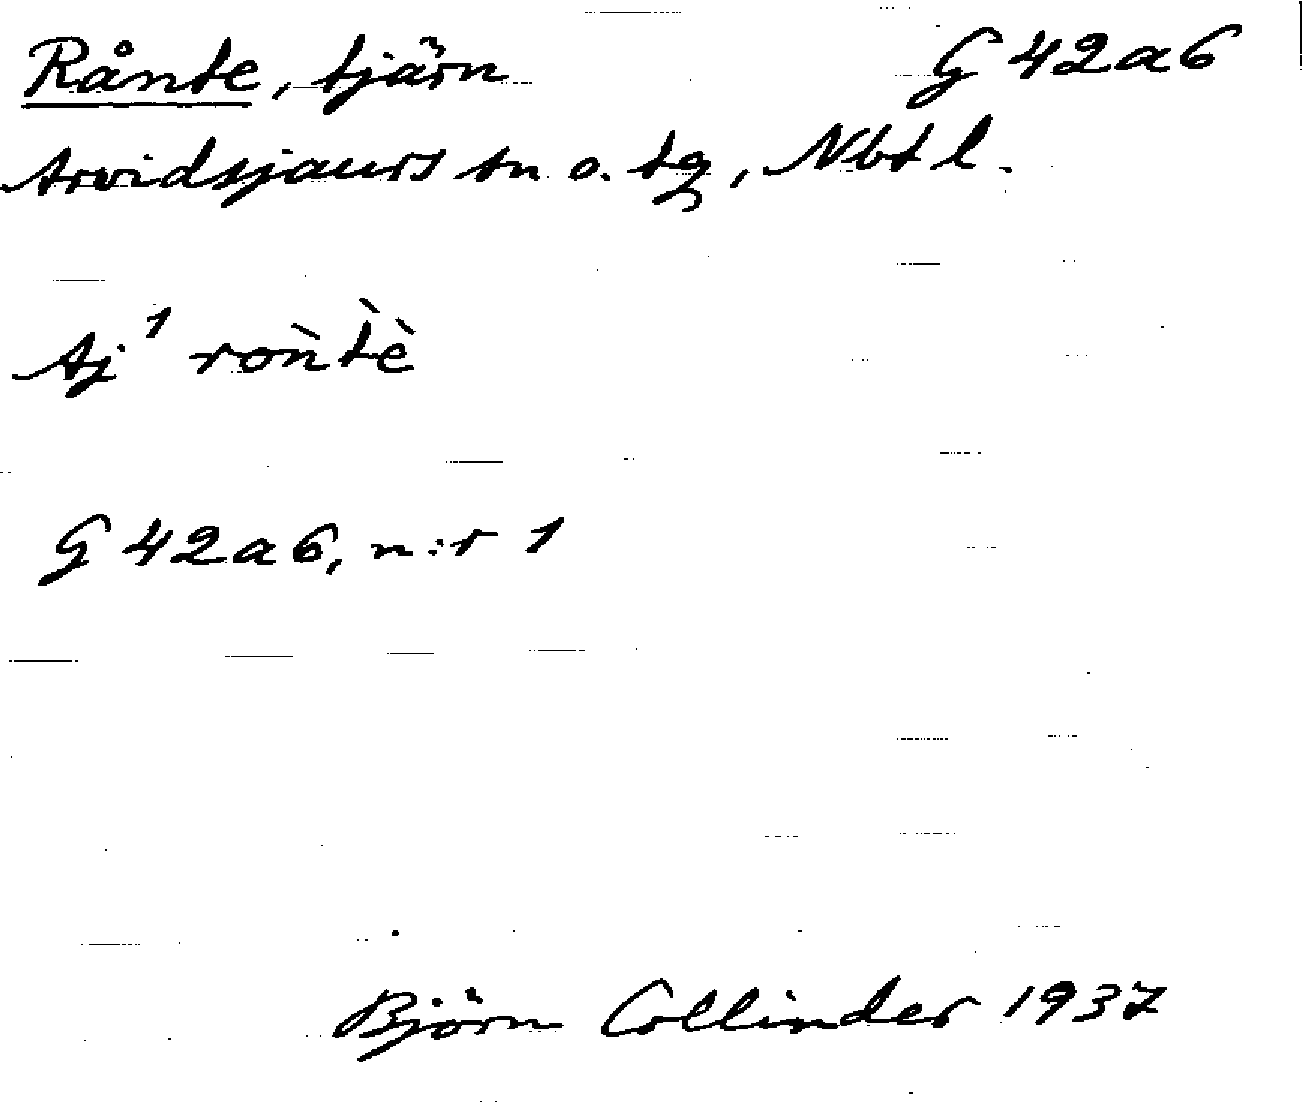 Rånte, tjärn G 42a6
Arvidsjaurs sn o. tg, Nbt l.
Aj¹ roǹt̀è
G 42a6, n:r 1
Björn Collinder 1937